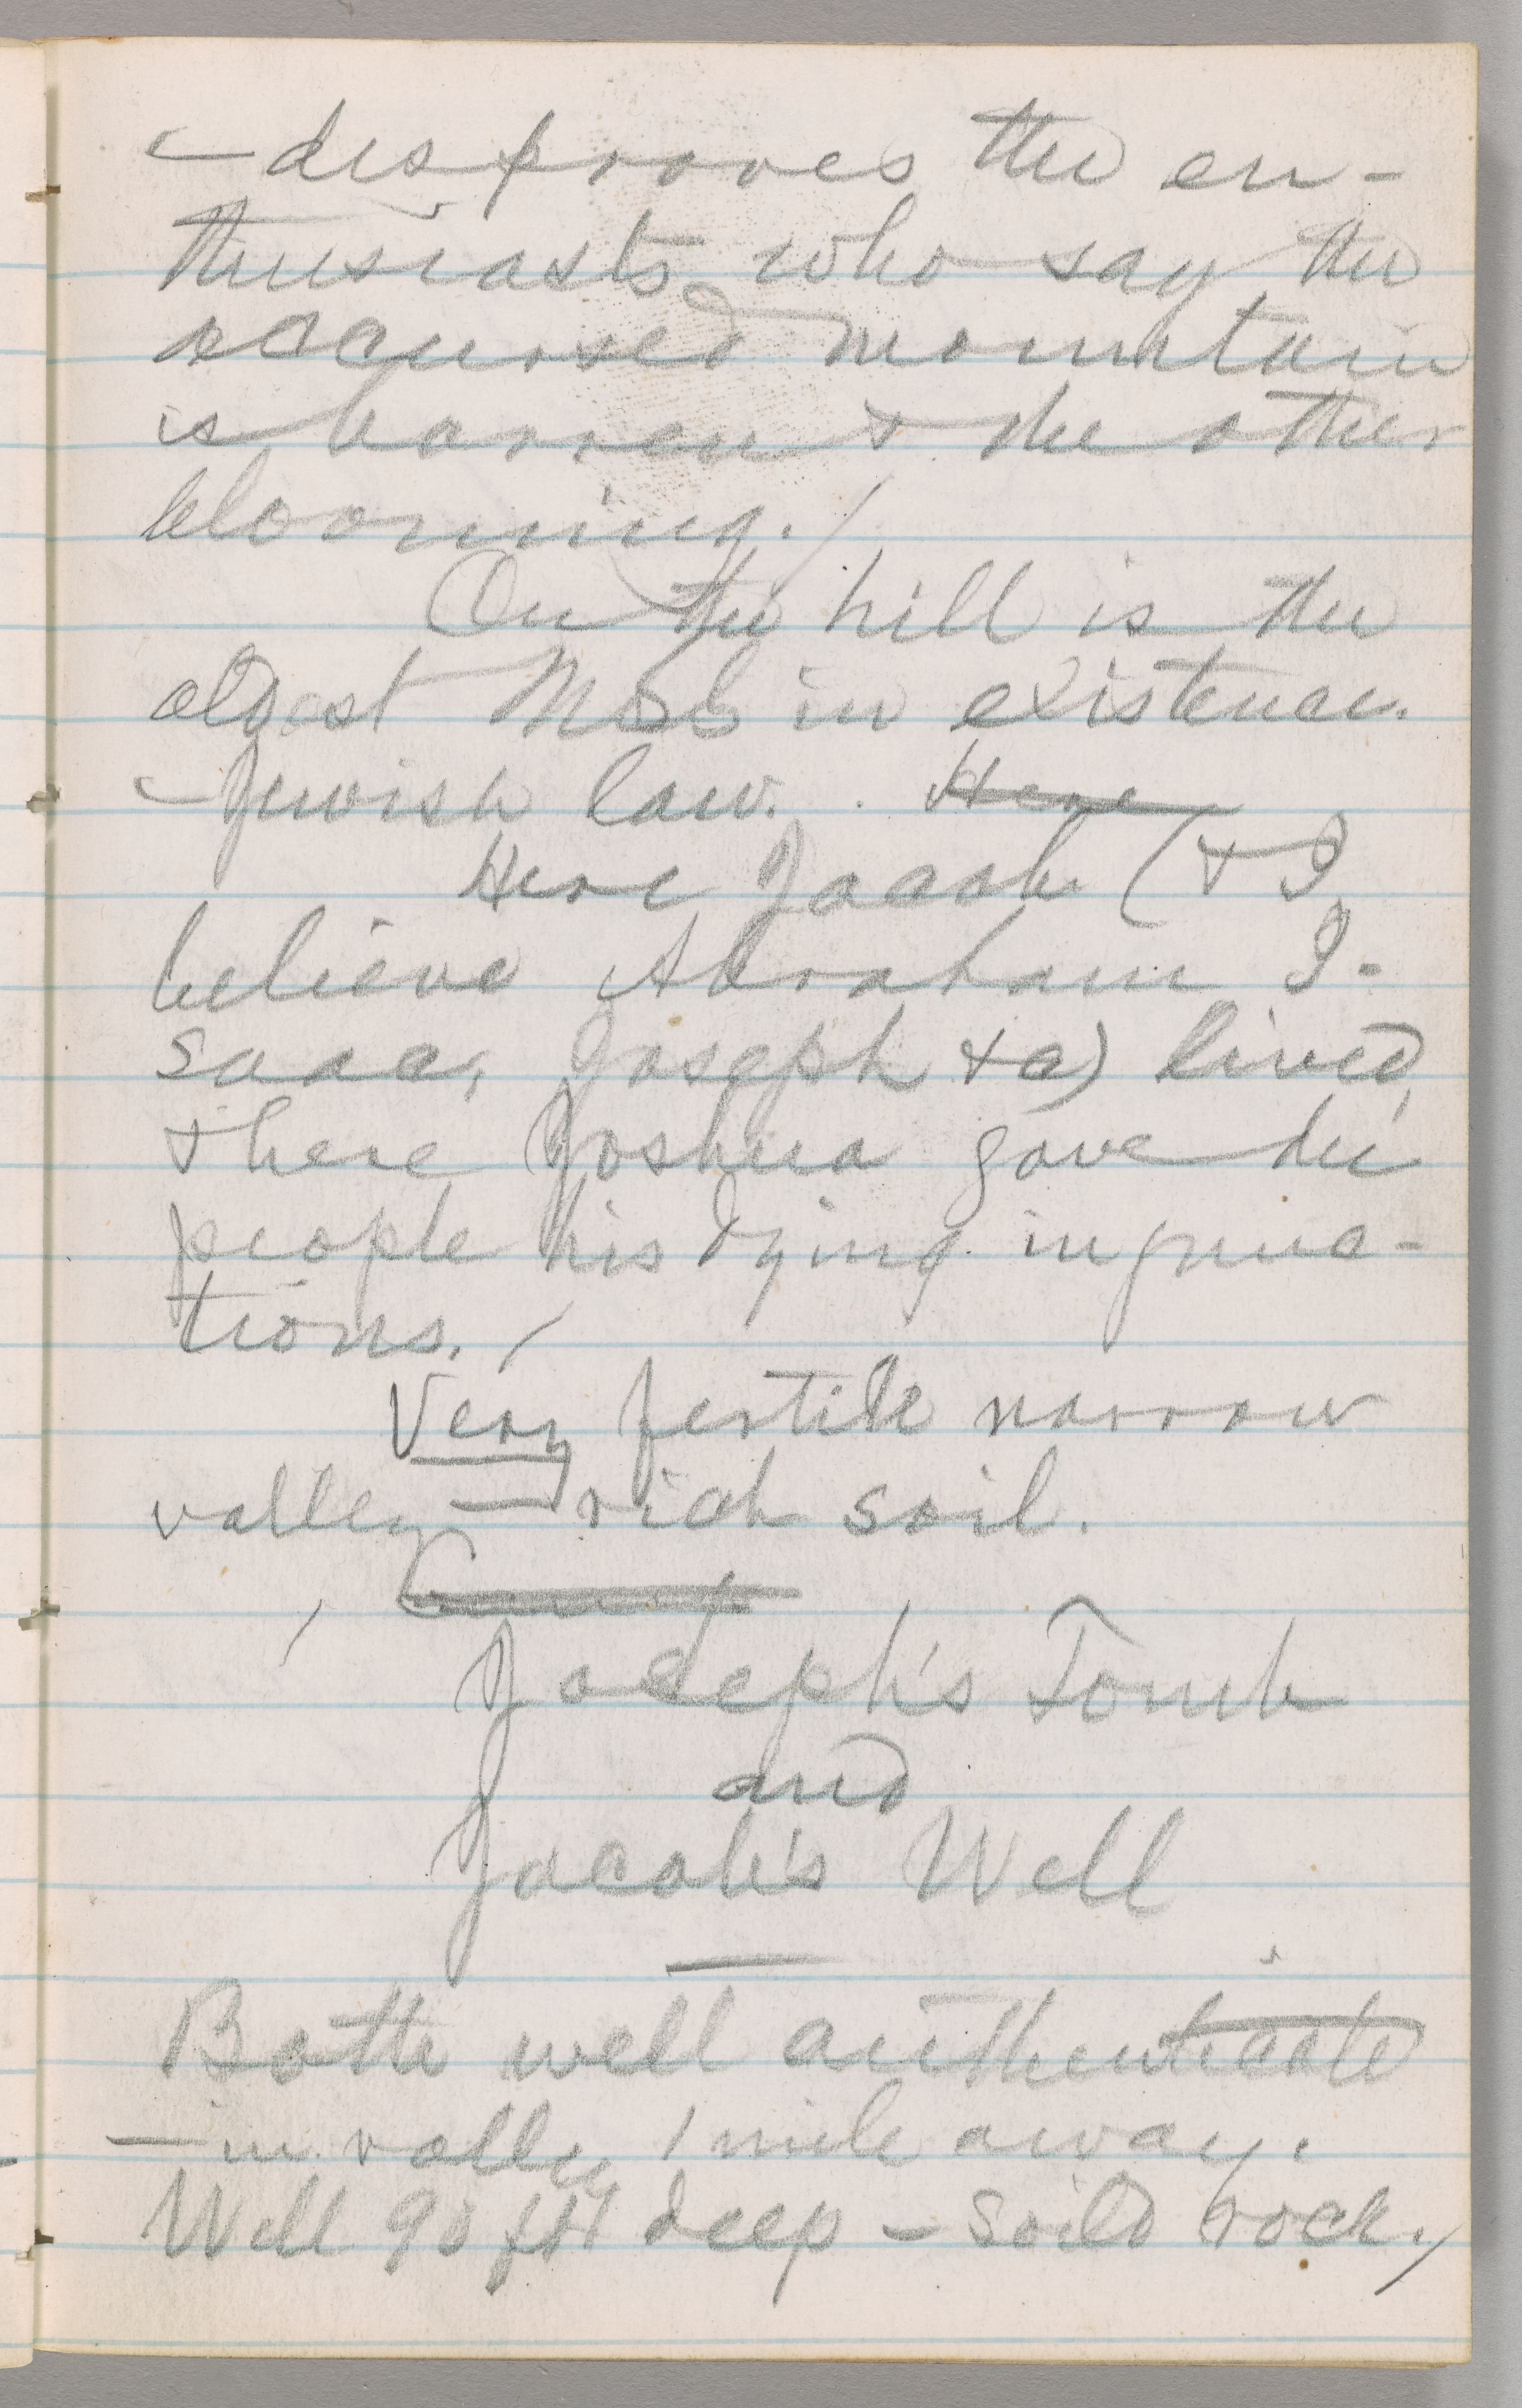 —disproves the en-
thusiasts who say the
accursed mountain
is barren & the other
blooming./
On the hill is the
oldest MSS in existence.
—Jewish law. Here
Here Jacob (& I
believe Abraham I-
saac, Joseph &c) lived,
& here Joshua gave his
people his dying injunc-
tions./
Very fertile narrow
valley—rich soil.
Joseph's Tomb
and
Jacob's Well
Both well authenticated
—in valley 1 mile away.
Well 90 feet deep—soild rock./